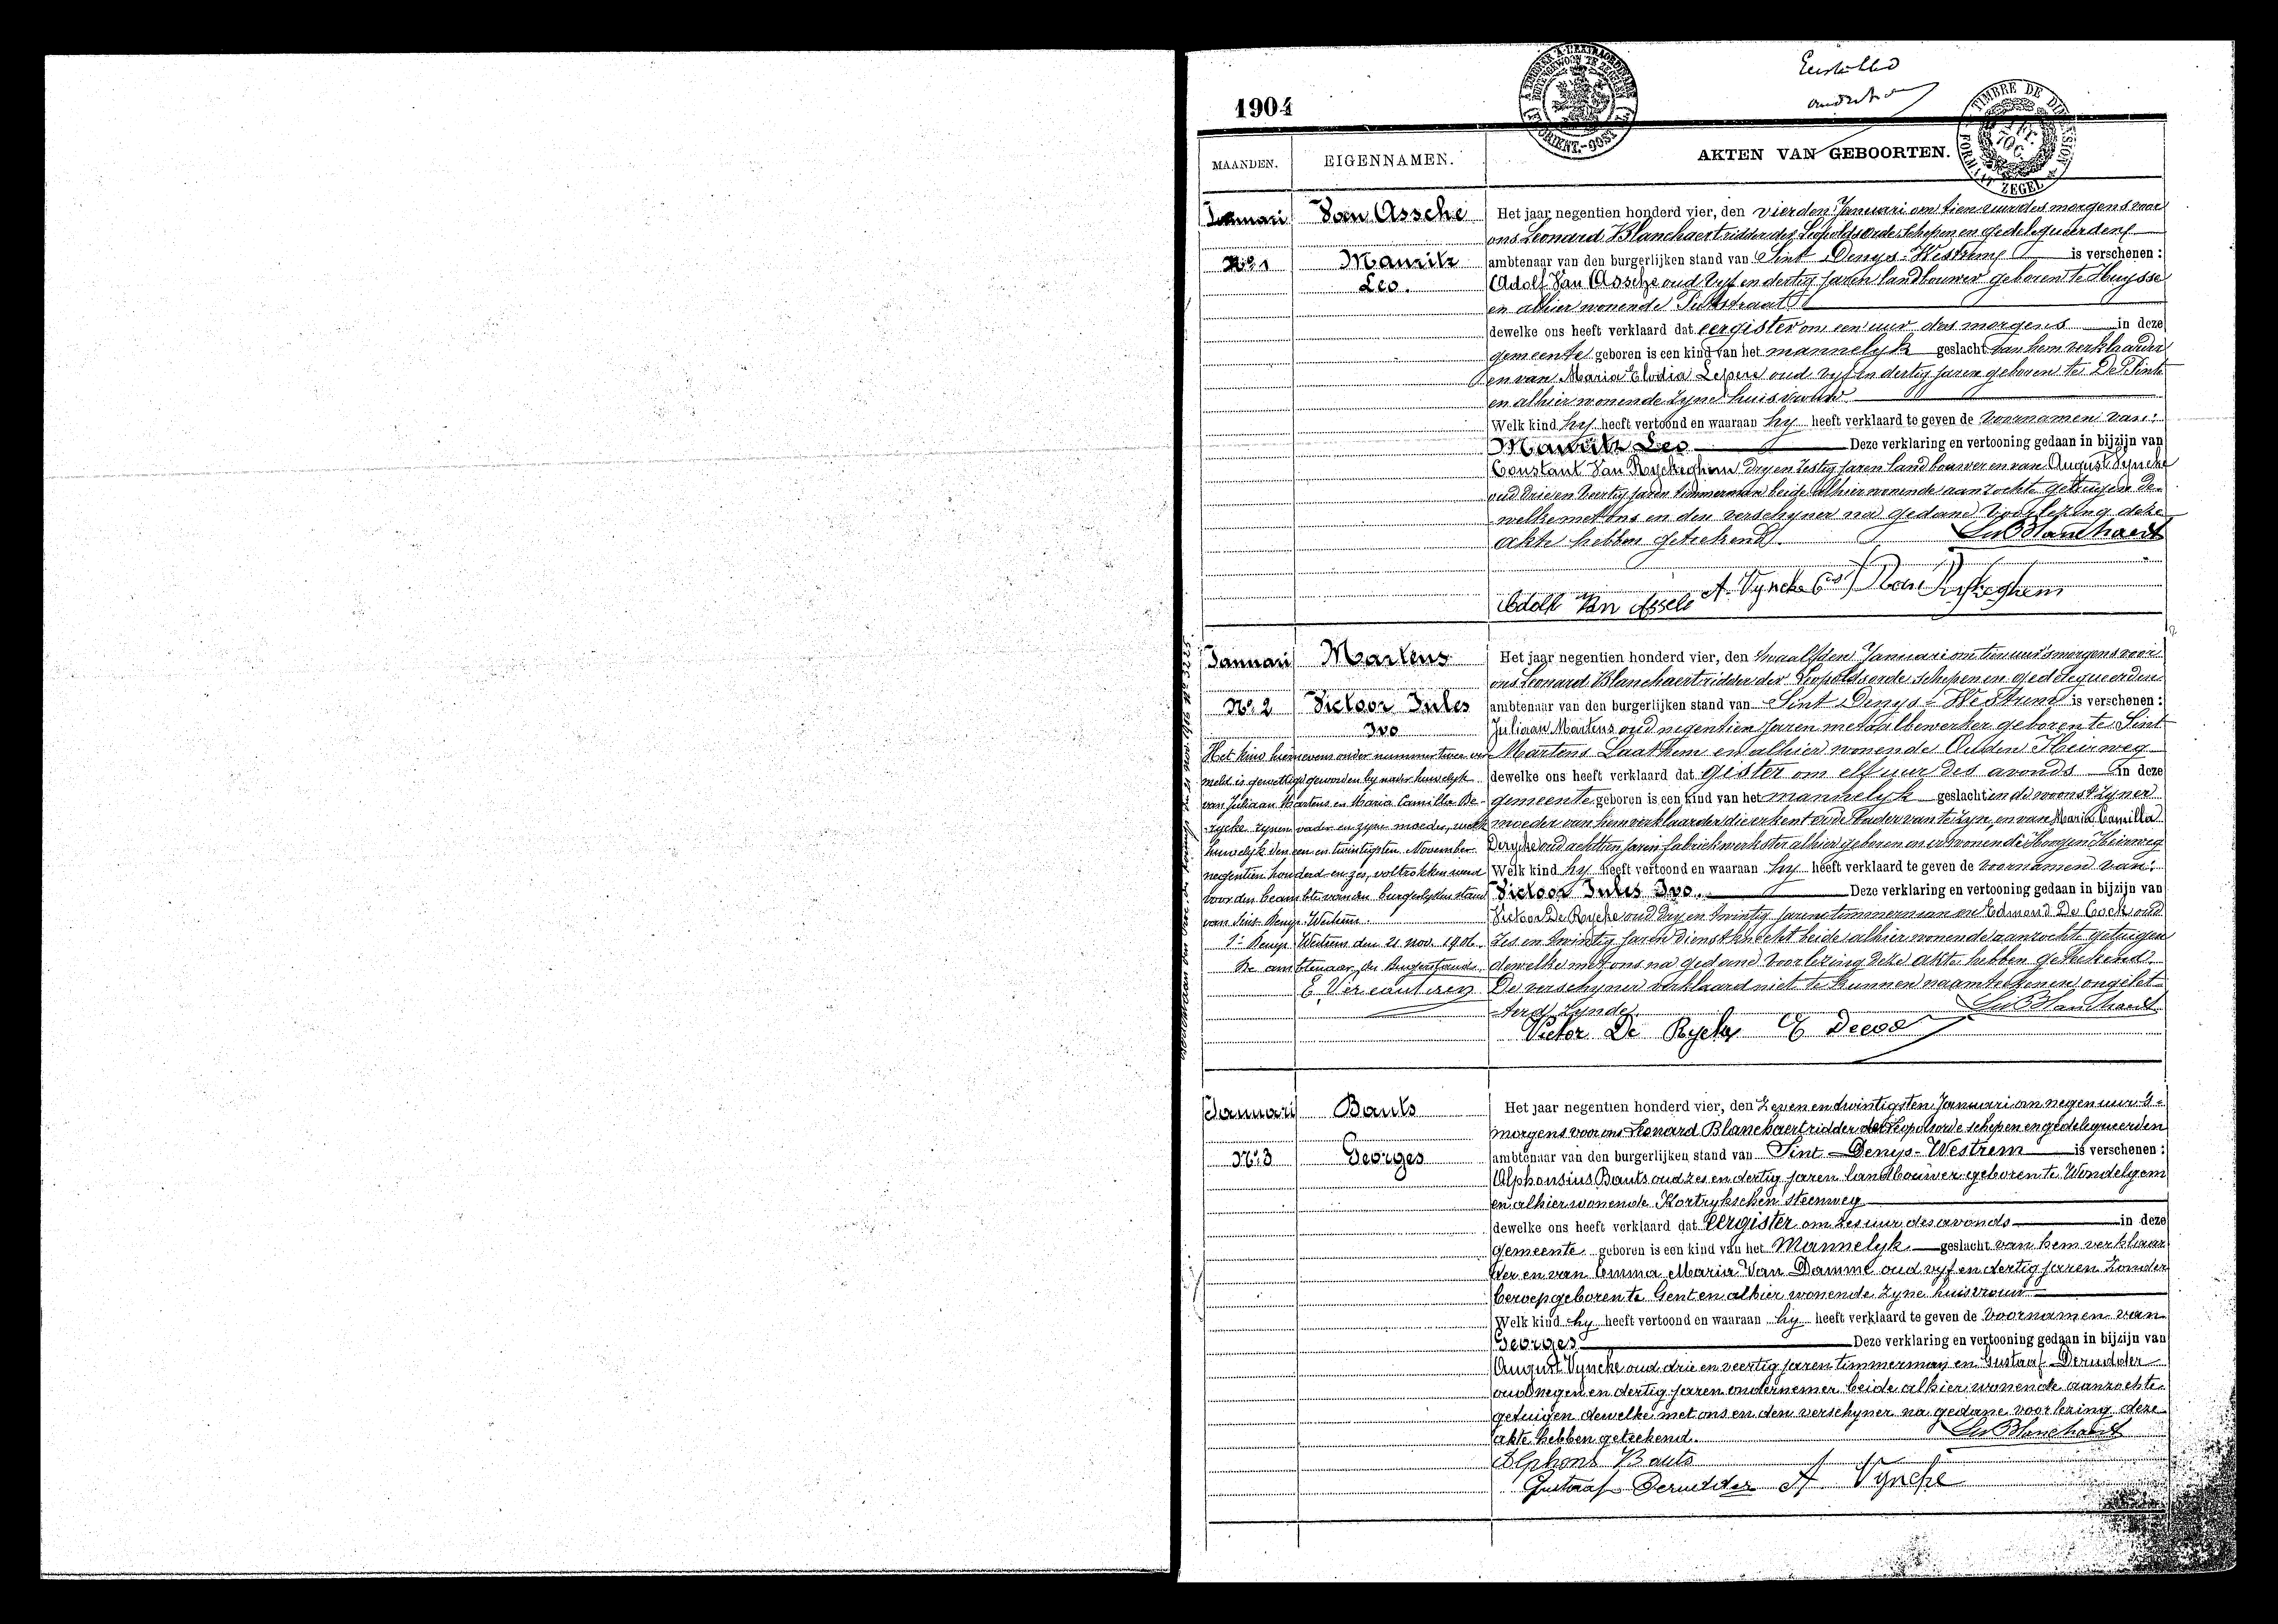 1904
TIMBRE DE DIMENSION
FORMAAT ZEGEL
MAANDEN.
EIGENNAMEN.
AKTEN VAN GEBOORTEN.
Januari
Van Assche
No 1
Mauritz
Leo.
Het jaar negentien honderd vier, den vierden Januari om tien uur des morgens voor
ons Leonard Blanchaert ridder der Leopoldsorde Schepen en gedelegueerden
ambtenaar van den burgerlijken stand van Sint Denys-Westrem is verschenen:
Adolf Van Assche oud vyf en dertig jaren landbouwer geboren te Huysse
en alhier wonende Putstraat
dewelke ons heeft verklaard dat eergister om een uur des morgens in deze
gemeente geboren is een kind van het mannelyk geslacht van hem verklaarder
en van Maria Elodia Lepere oud vyf en dertig jaren geboren te De Pinte
en alhier wonende zyne huisvrouw
Welk kind hy heeft vertoond en waaraan hy heeft verklaard te geven de voornamen van:
Mauritz Leo Deze verklaring en vertooning gedaan in bijzijn van
Constant Van Ryckeghem dry en zestig jaren landbouwer en van August Vyncke
oud drie en veertig jaren timmerman beide alhier wonende aanzochte getuigen de-
welke met ons en den verschyner na gedane voorlezing deze
akte hebben geteekend.
Leo Blanchaert
Adolf Van Assche A. Vyncke Cst Van Ryckeghem
Januari
Martens
No 2
Victoor Jules
Ivo
Het kind hiernevens onder nummer twee ver
meld is gewettigd geworden by nader huwelyk
van Juliaan Martens en Maria Camilla De-
rycke zynen vader en zyne moeder, welk
huwelyk den een en twintigsten November
negentien honderd en zes, voltrokken werd
voor den beambte van den burgerlyken stand
van Sint Denys Westrem.
St Denys Westrem den 21 nov. 1906.
De ambtenaar des Burgerstands
E Vercauteren
Het jaar negentien honderd vier, den twaalfden Januari om tien uur 's morgens voor
ons Leonard Blanchaert ridder der Leopoldsorde schepen en gedelegueerden
ambtenaar van den burgerlijken stand van Sint Denys-Westrem is verschenen:
Juliaan Martens oud negentien jaren metaalbewerker geboren te Sint
Martens Laathem en alhier wonende Ouden Heirweg
dewelke ons heeft verklaard dat gister om elf uur des avonds in deze
gemeente geboren is een kind van het mannelyk geslacht in de woonst zyner
moeder van hem verklaarder die erkent er de vader van te zyn, en van Maria Camilla
Derycke oud achttien jaren fabriekwerkster alhier geboren en er wonende Hoogen Heirweg
Welk kind hy heeft vertoond en waaraan hy heeft verklaard te geven de voornamen van:
Victoor Jules Ivo. Deze verklaring en vertooning gedaan in bijzijn van
Victoor De Rycke oud dry en twintig jaren timmerman en Edmond De Cock oud
zes en twintig jaren dienstknecht beide alhier wonende aanzochte getuigen
dewelke met ons na gedane voorlezing deze akte hebben geteekend.
De verschyner verklaard niet te kunnen naamteekenen ongelet-
terd zynde.
Leo Blanchaert
Victor De Rycke
Januari
Bauts
No 3
Georges
Het jaar negentien honderd vier, den Zeven en twintigsten Januari om negen uur 's-
morgens voor ons Leonard Blanchaert ridder der Leopoldsorde schepen en gedelegueerden
ambtenaar van den burgerlijken stand van Sint-Denys-Westrem is verschenen:
Alphonsius Bauts oud zes en dertig jaren landbouwer geboren te Wondelgem
en alhier wonende Kortrykschen steenweg
dewelke ons heeft verklaard dat eergister om zes uur des avonds in deze
gemeente geboren is een kind van het Mannelyk geslacht van hem verklaar
der en van Emma Maria Van Damme oud vyf en dertig jaren zonder
beroep geboren te Gent en alhier wonende zyne huisvrouw
Welk kind hy heeft vertoond en waaraan hy heeft verklaard te geven de voornamen van
Georges Deze verklaring en vertooning gedaan in bijzijn van
August Vyncke oud drie en veertig jaren timmerman en Gustaaf Derudder
oud negen en dertig jaren ondernemer beide alhier wonende aanzochte
getuigen dewelke met ons en den verschyner na gedane voorlezing deze
akte hebben geteekend.
Leo Blanchaert
Alphons Bauts
Gustaaf Derudder A Vyncke